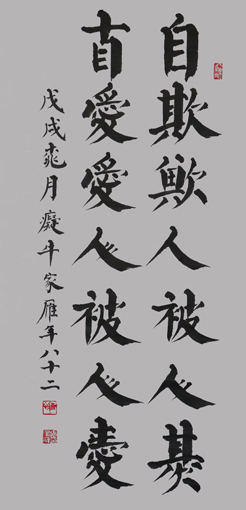 自欺欺人被人欺
自愛愛人被人愛
戊戌桃月癡牛家雁年八十二